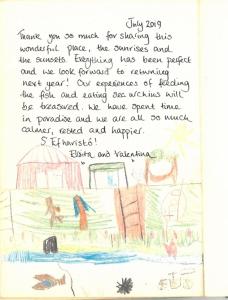 July 2019
Thank you so much for sharing this
wonderful place, the sunrises and
the sunsets. Everything has been perfect
and we look forward to returning
next year! Our experiences of feeding
the fish and eating sea urchins will
be treasured. We have spent time
in paradise and we are all so much
calmer, rested and happier.
S' Efharistó!
and Valentina